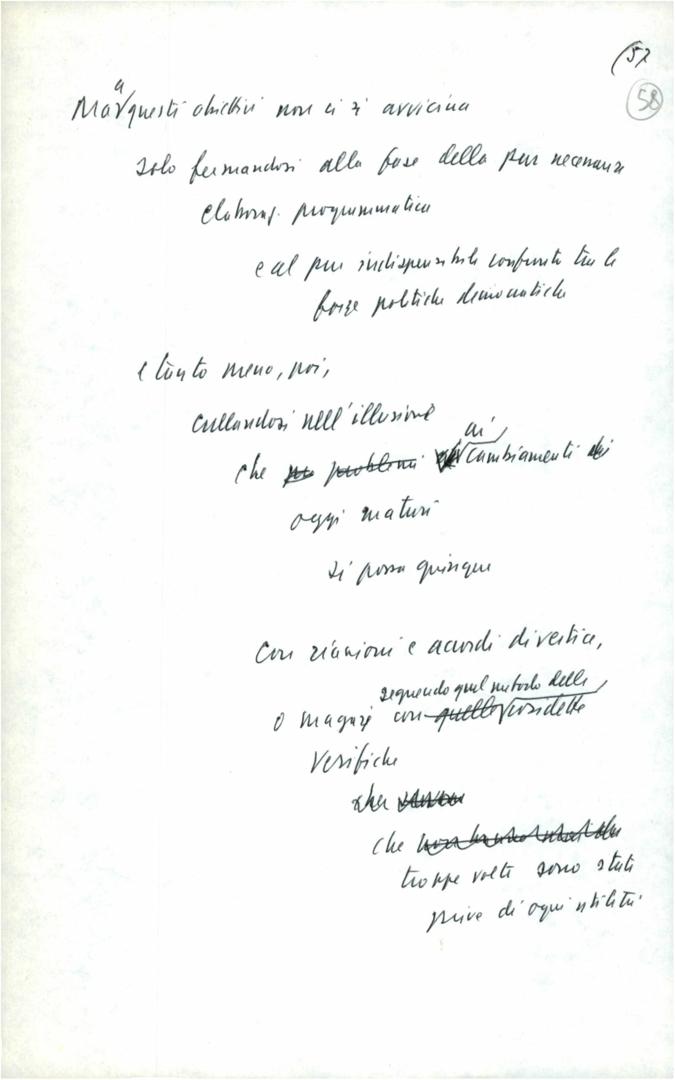 (57
58
a
Ma questi obiettivi non ci si avvicina
solo fermandosi alla fase della pur necessaria
elaboraz. programmatica
e al pur indispensabile confronto tra le
forze politiche democratiche
e tanto meno, poi,
cullandosi nell'illusione
ai
che problemi cambiamenti
oggi maturi
si possa giungere
con riunioni e accordi di vertice,
seguendo quel metodo delle
o magari con quelle cosidette
verifiche
che
che
troppe volte sono state
prive di ogni utilità